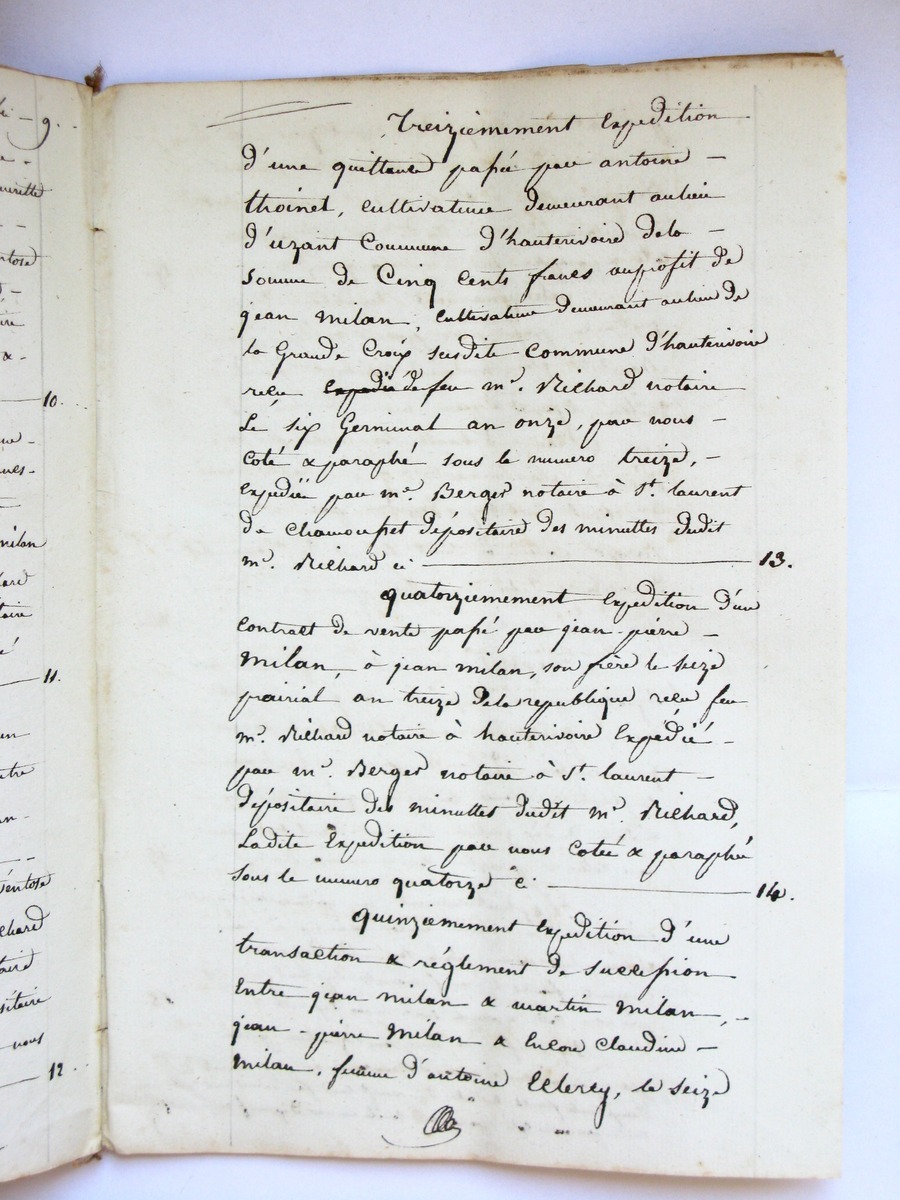 9.
10.
milan
11.
ventose
12.
Treiziemement Expedition
d'une quittance passée par antoine –
thoinet, cultivateur demeurant au lieu
d'uzant Commune d'hauterivoire de la –
somme de Cinq cents francs au profit de
jean milan, cultivateur demeurant au lieu de
la Grande Croix susdite commune d'hauterivoire
reçue expediée de feu me. Richard notaire
Le six Germinal an onze, par nous –
Coté & paraphé sous le numero treize, –
Expediée par me. Berger notaire à St. laurent
de Chamousset dépositaire des minuttes dudit
me. Richard ci — 13.
quatorziemement Expedition d'un
Contract de vente passé par jean-pierre –
Milan, à jean milan, son frère le seize
prairial an treize de la republique reçu feu
me. Richard notaire à hauterivoire Expédié –
par me. Berger notaire à St. laurent –
dépositaire des minuttes dudit me. Richard,
Ladite Expedition par nous Cotée & paraphée
sous le numero quatorze ci — 14.
quinziemement Expedition d'une
transaction & réglement de succession
Entre jean milan & martin milan, –
jean-pierre Milan & Encore Claudine –
milan, femme d'antoine, le seize